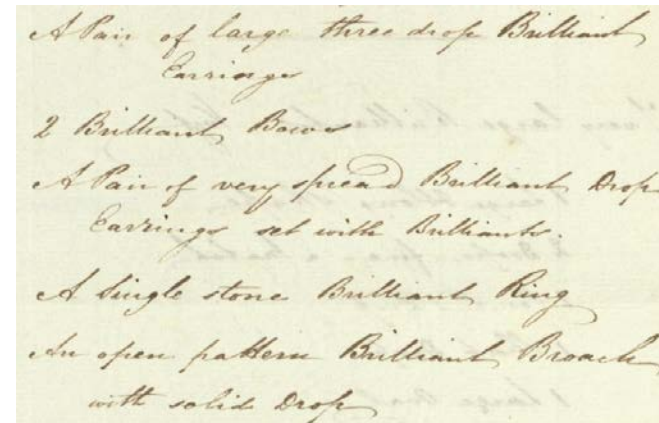 A Pair of large three drop Brilliant
Earrings
2 Brilliant Bows
A Pair of very spread Brilliant Drop
Earrings set with Brilliants.
A Single stone Brilliant Ring
An open pattern Brilliant Broach
with solid Drop